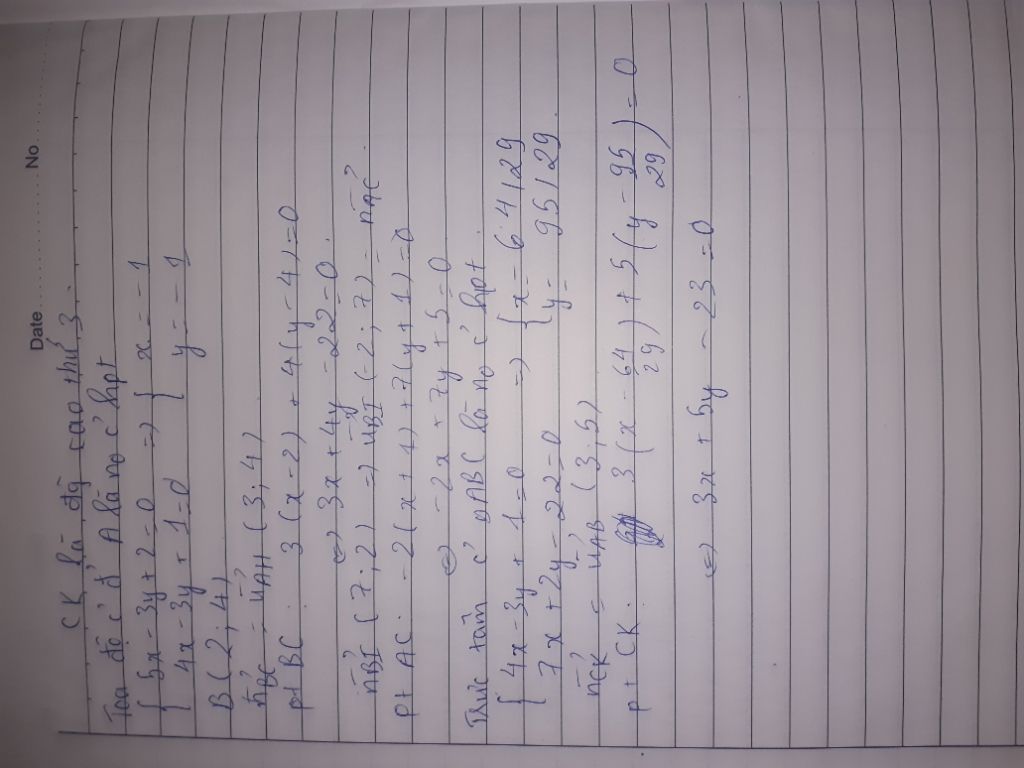 Date ................. No. ..........
CK là đg cao thứ 3.
Toạ độ c' đ' A là no c' hpt
{ 5x - 3y + 2 = 0 => { x = -1
{ 4x - 3y + 1 = 0 { y = -1
B(2;4)
n⃗BC = u⃗AH (3;4)
pt BC: 3(x-2) + 4(y-4) = 0
(=) 3x + 4y - 22 = 0.
n⃗BI (7;2) => u⃗BI (-2;7) = n⃗AC.
pt AC: -2(x+1) + 7(y+1) = 0
(=) -2x + 7y + 5 = 0
Trực tâm c' ΔABC là no c' hpt
{ 4x - 3y + 1 = 0 => { x = 64/29
{ 7x + 2y - 22 = 0 { y = 95/29.
n⃗CK = u⃗AB (3;5)
pt CK: 3(x - 64/29) + 5(y - 95/29) = 0
(=) 3x + 5y - 23 = 0